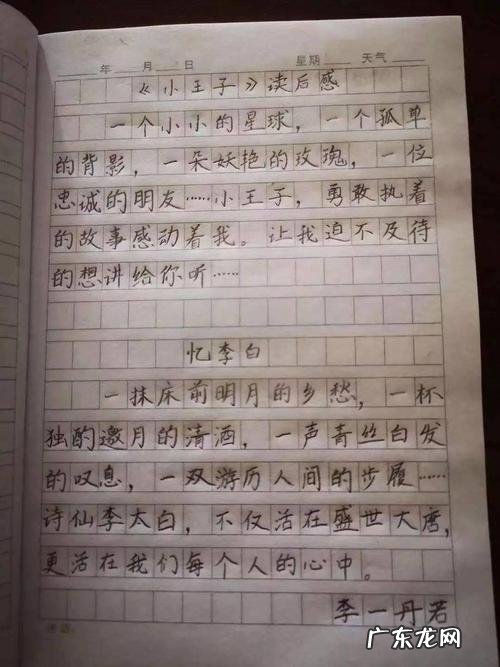 年 月 日 星期 天气
《小王子》读后感
一个小小的星球，一个孤单
的背影，一朵妖艳的玫瑰，一位
忠诚的朋友……小王子，勇敢执着
的故事感动着我。让我迫不及待
的想讲给你听……
忆李白
一抹床前明月的乡愁，一杯
独酌邀月的清酒，一声青丝白发
的叹息，一双游历人间的步履……
诗仙李太白，不仅活在盛世大唐，
更活在我们每个人的心中。
李一丹若
广东龙网